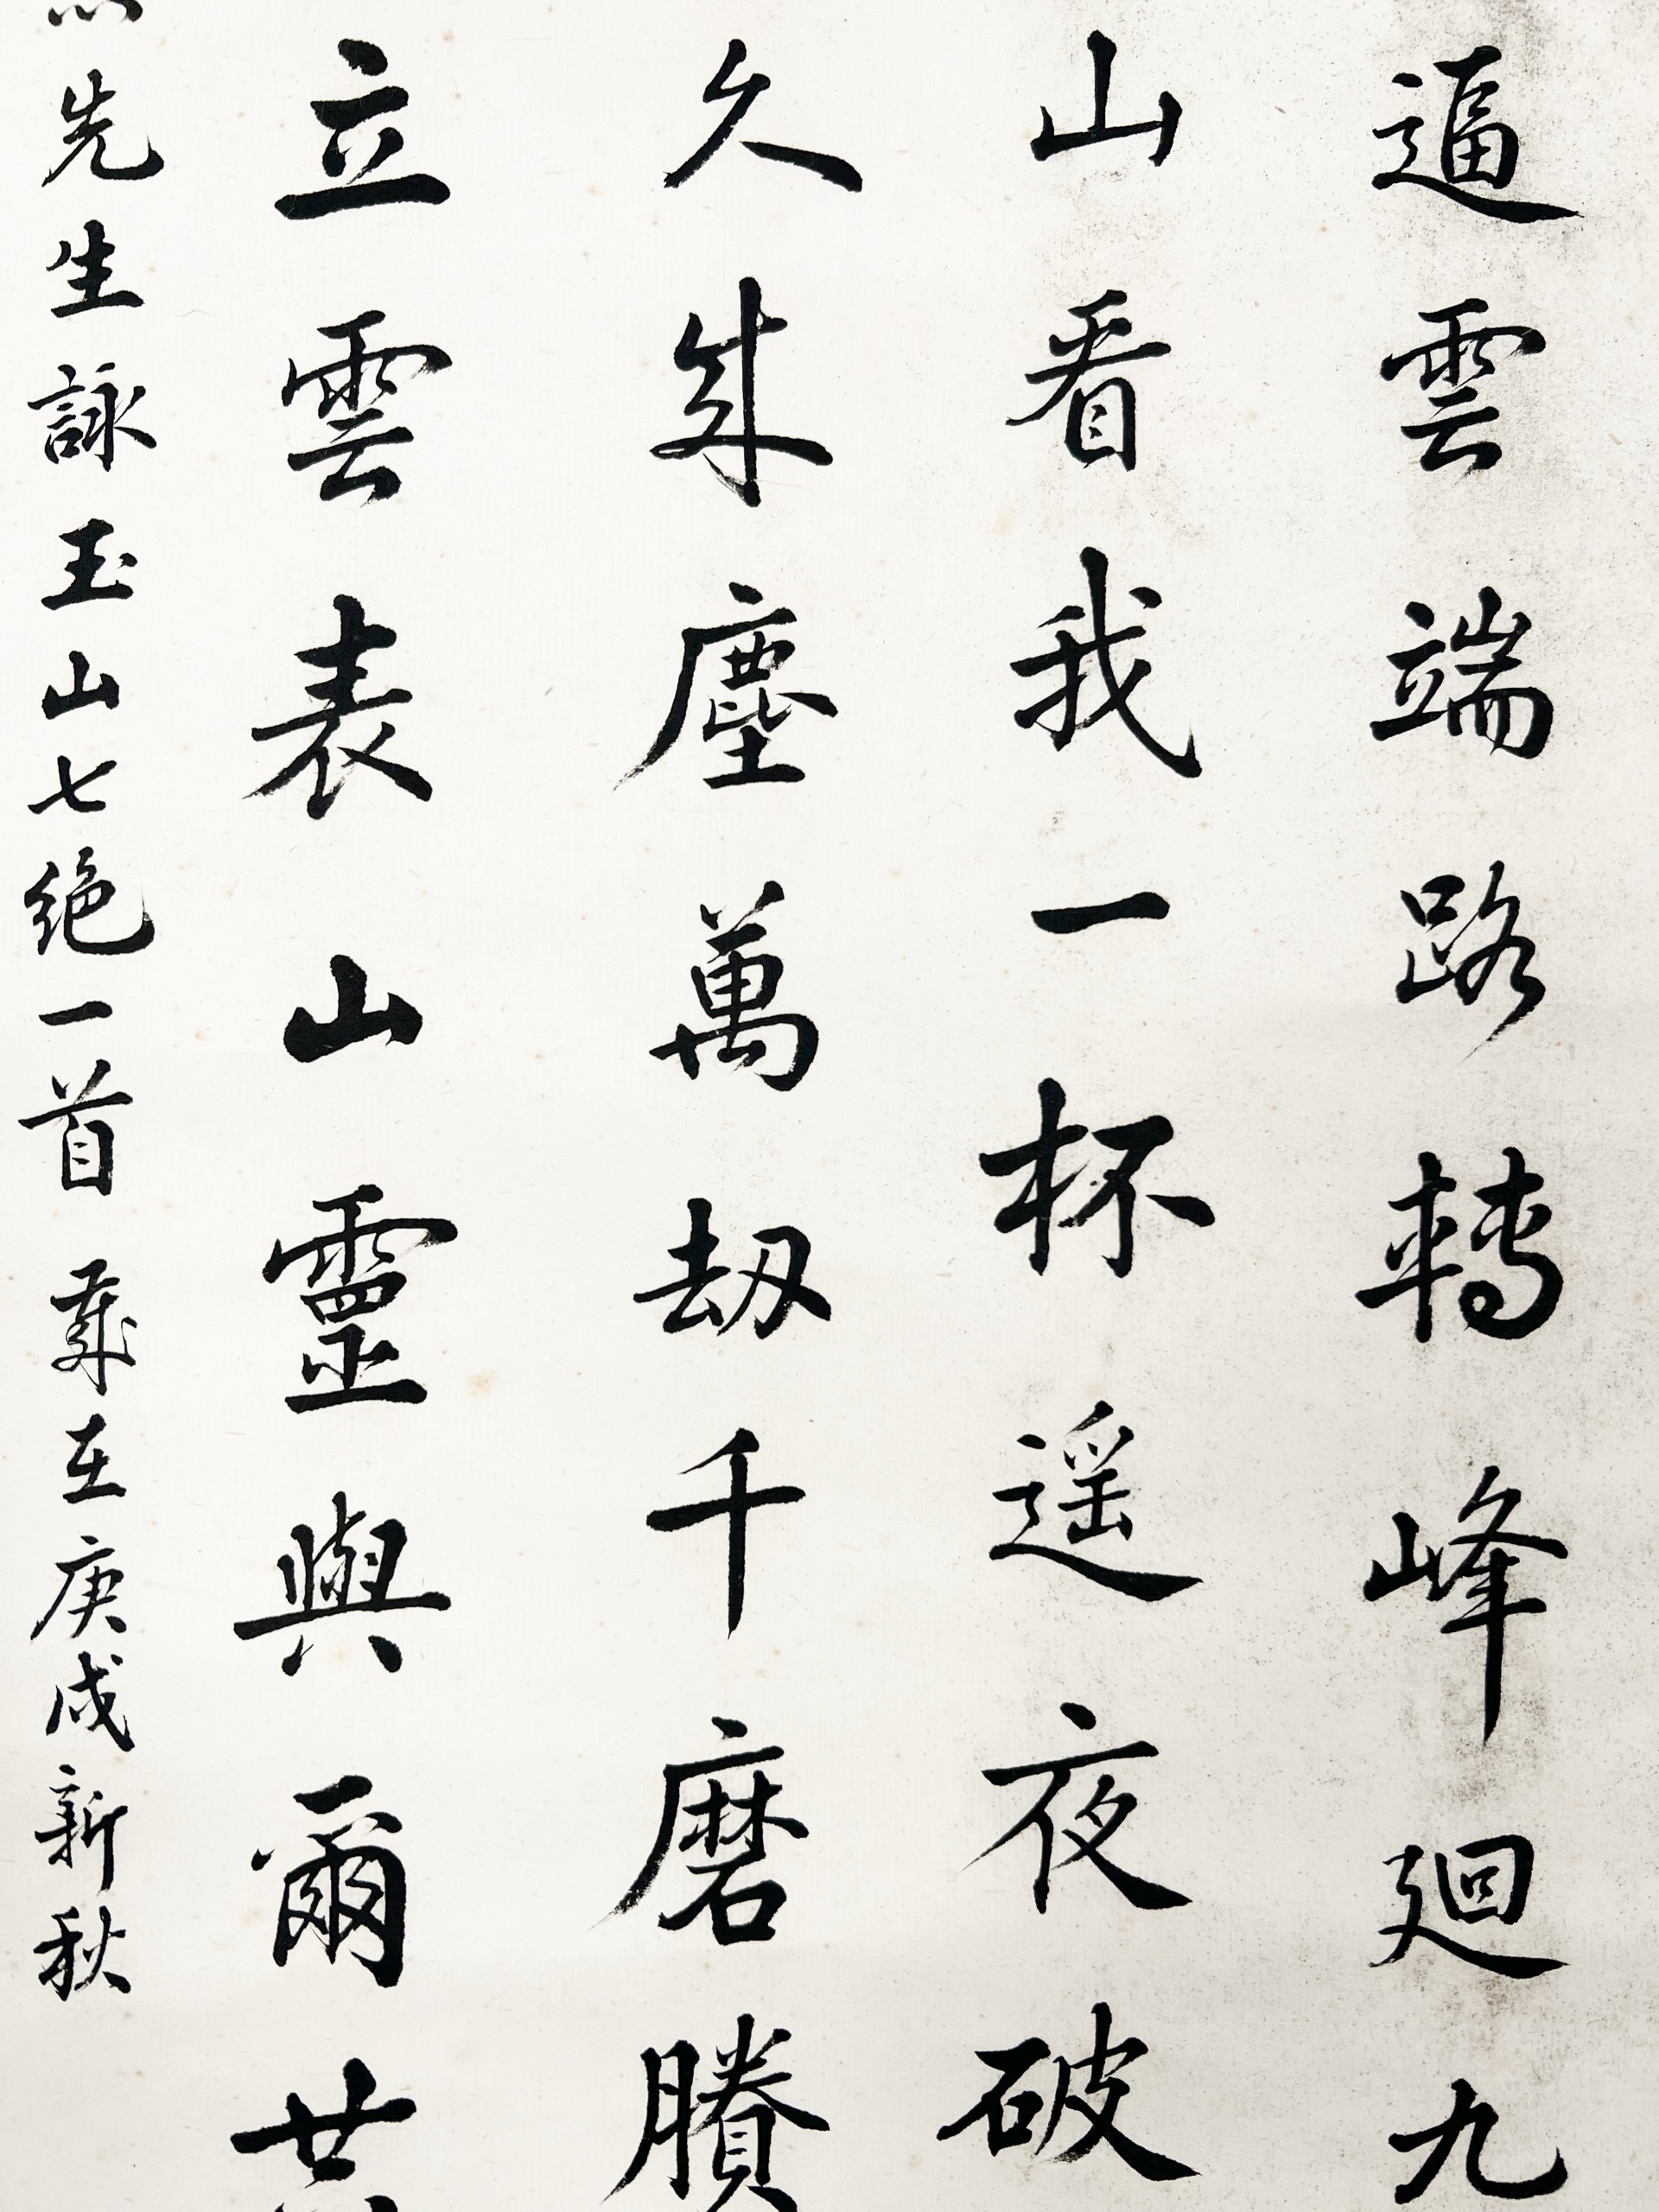 逼雲端路轉峰迴九
山看我一杯遥夜破
久塵萬刼千磨賸
立雲表山靈與爾
先生詠玉山七絕一首 在庚戌新秋